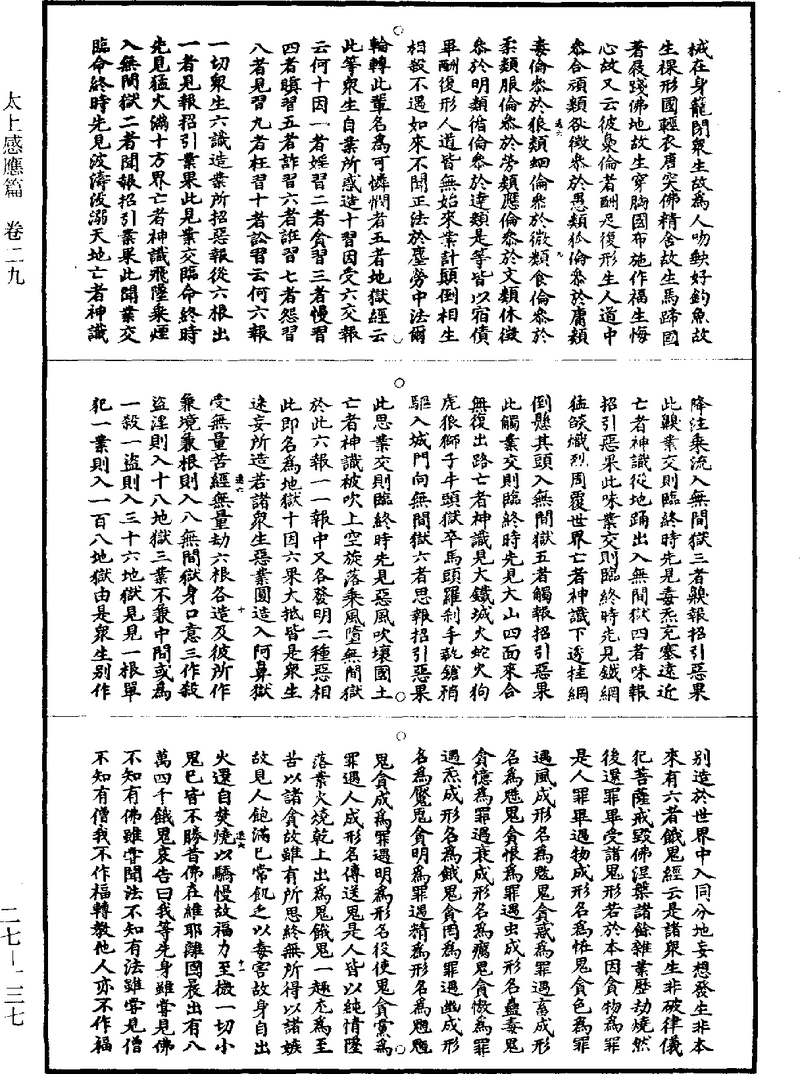 太上感應篇 卷二九
二七—一三七
械在身籠閉衆生故為人吻缺好釣魚故
生裸形國輕衣唐突佛精舍故生馬蹄國
著屐踐佛地故生穿胸國布施作福生悔
心故又云彼梟倫者酬足復形生人道中
叅合頑類咎徵叅於愚類狐倫叅於庸類
毒倫叅於狠類蛔倫叅於微類食倫叅於
柔類服倫叅於勞類應倫叅於文類休徵
叅於明類循倫叅於達類是等皆以宿債
畢酬復形人道皆無始來業計顛倒相生
相殺不遇如來不聞正法於塵勞中法爾
輪轉此輩名為可憐憫者五者地獄經云
此等衆生自業所感造十習因受六交報
云何十因一者婬習二者貪習三者慢習
四者瞋習五者詐習六者誑習七者怨習
八者見習九者枉習十者訟習云何六報
一切衆生六識造業所招惡報從六根出
一者見報招引業果此見業交臨命終時
先見猛火滿十方界亡者神識飛墜乗煙
入無間獄二者聞報招引業果此聞業交
臨命終時先見波濤沒溺天地亡者神識
降注乗流入無間獄三者齅報招引惡果
此齅業交則臨終時先見毒炁充塞遠近
亡者神識從地踊出入無間獄四者味報
招引惡果此味業交則臨終時先見鐵網
猛燄熾烈周覆世界亡者神識下透挂網
倒懸其頭入無間獄五者觸報招引惡果
此觸業交則臨終時先見大山四面來合
無復出路亡者神識見大鐵城火蛇火狗
虎狼獅子牛頭獄卒馬頭羅剎手執鎗矟
驅入城門向無間獄六者思報招引惡果
此思業交則臨終時先見惡風吹壞國土
亡者神識被吹上空旋落乗風墮無間獄
於此六報一一報中又各發明二種惡相
此即名為地獄十因六果大抵皆是衆生
迷妄所造若諸衆生惡業圓造入阿鼻獄
受無量苦經無量劫六根各造及彼所作
兼境兼根則入八無間獄身口意三作殺
盜淫則入十八地獄三業不兼中間或為
一殺一盜則入三十六地獄見見一根單
犯一業則入一百八地獄由是衆生別作
別造於世界中入同分地妄想發生非本
來有六者餓鬼經云是諸衆生非破律儀
犯菩薩戒毀佛涅槃諸餘雜業歷劫燒然
後還罪畢受諸鬼形若於本因貪物為罪
是人罪畢遇物成形名為怪鬼貪色為罪
遇風成形名為魃鬼貪惑為罪遇畜成形
名為魅鬼貪恨為罪遇虫成形名蠱毒鬼
貪憶為罪遇衰成形名為癘鬼貪慠為罪
遇炁成形名為餓鬼貪罔為罪遇幽成形
名為魘鬼貪明為罪遇精為形名為魍魎
鬼貪成為罪遇明為形名役使鬼貪黨為
罪遇人成形名傳送鬼是人皆以純情墜
落業火燒乾上出為鬼餓鬼一趣尤為至
苦以諸貪故雖有所思終無所得以諸嫉
故見人飽滿已常飢乏以毒害故身自出
火還自焚燒以驕慢故福力至微一切小
鬼已皆不勝昔佛在維耶離國晨出有八
萬四千餓鬼哀告曰我等先身雖嘗見佛
不知有佛雖嘗聞法不知有法雖嘗見僧
不知有僧我不作福轉教他人亦不作福